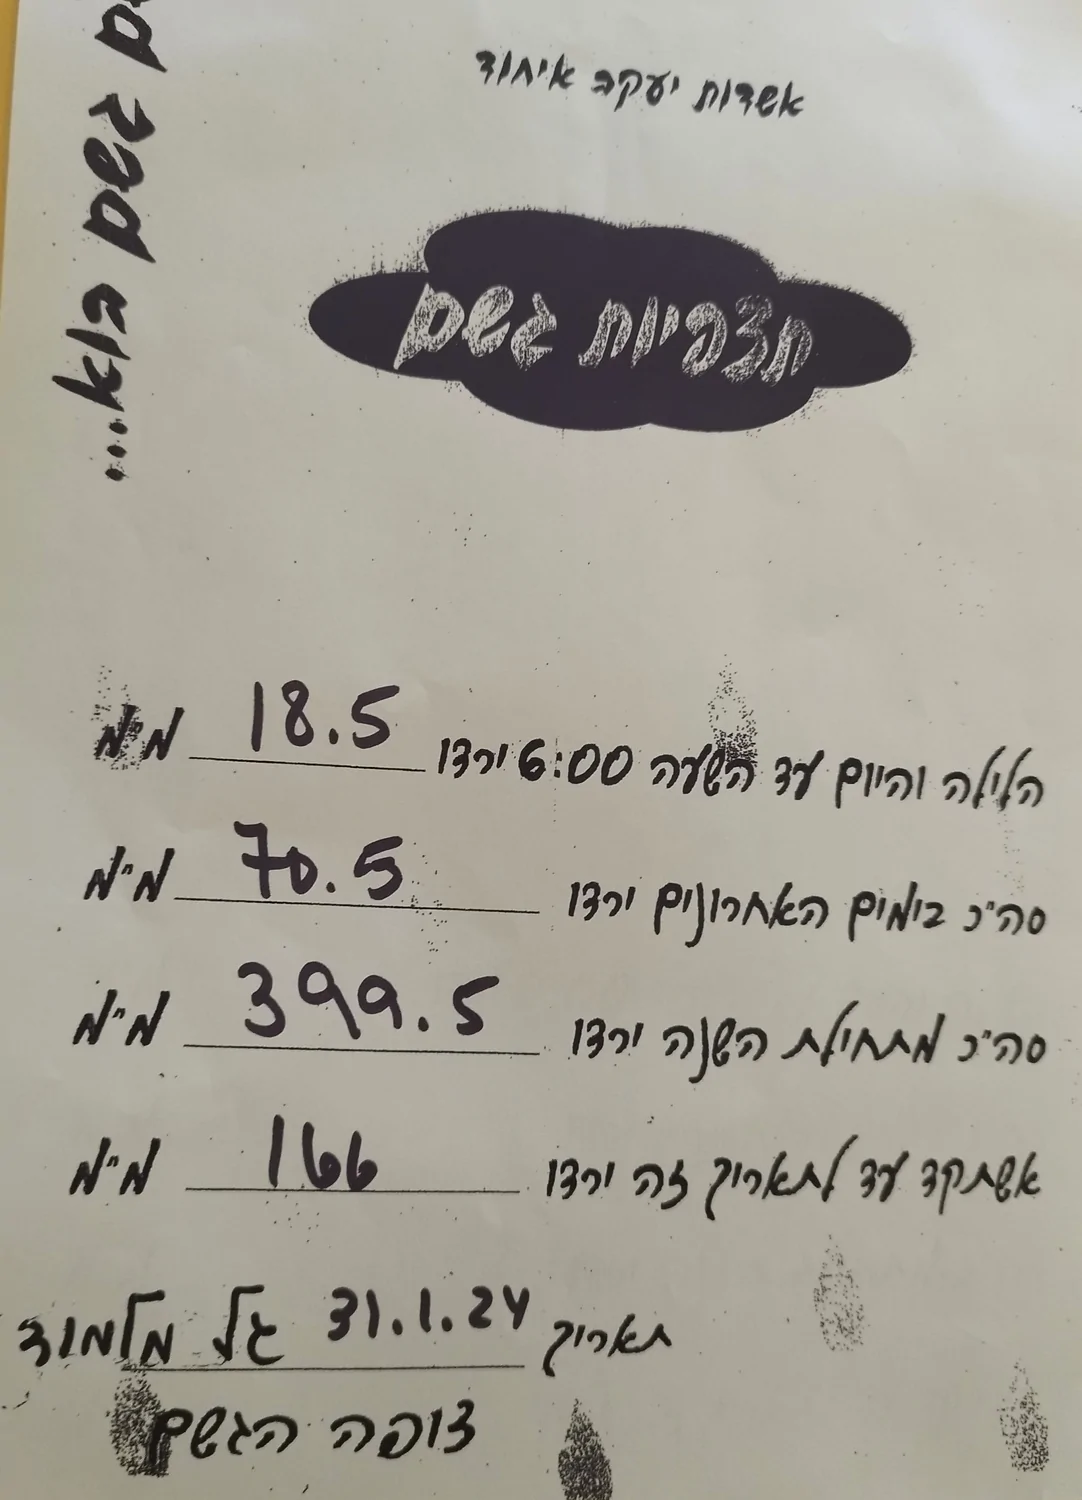 אשדות יעקב איחוד
גשם גשם בוא...
תצפיות גשם
הלילה והיום עד השעה 6:00 ירדו 18.5 מ"מ
סה"כ בימים האחרונים ירדו 70.5 מ"מ
סה"כ מתחילת השנה ירדו 399.5 מ"מ
אשתקד עד לתאריך זה ירדו 166 מ"מ
תאריך 31.1.24 גל מלמוד
צופה הגשם